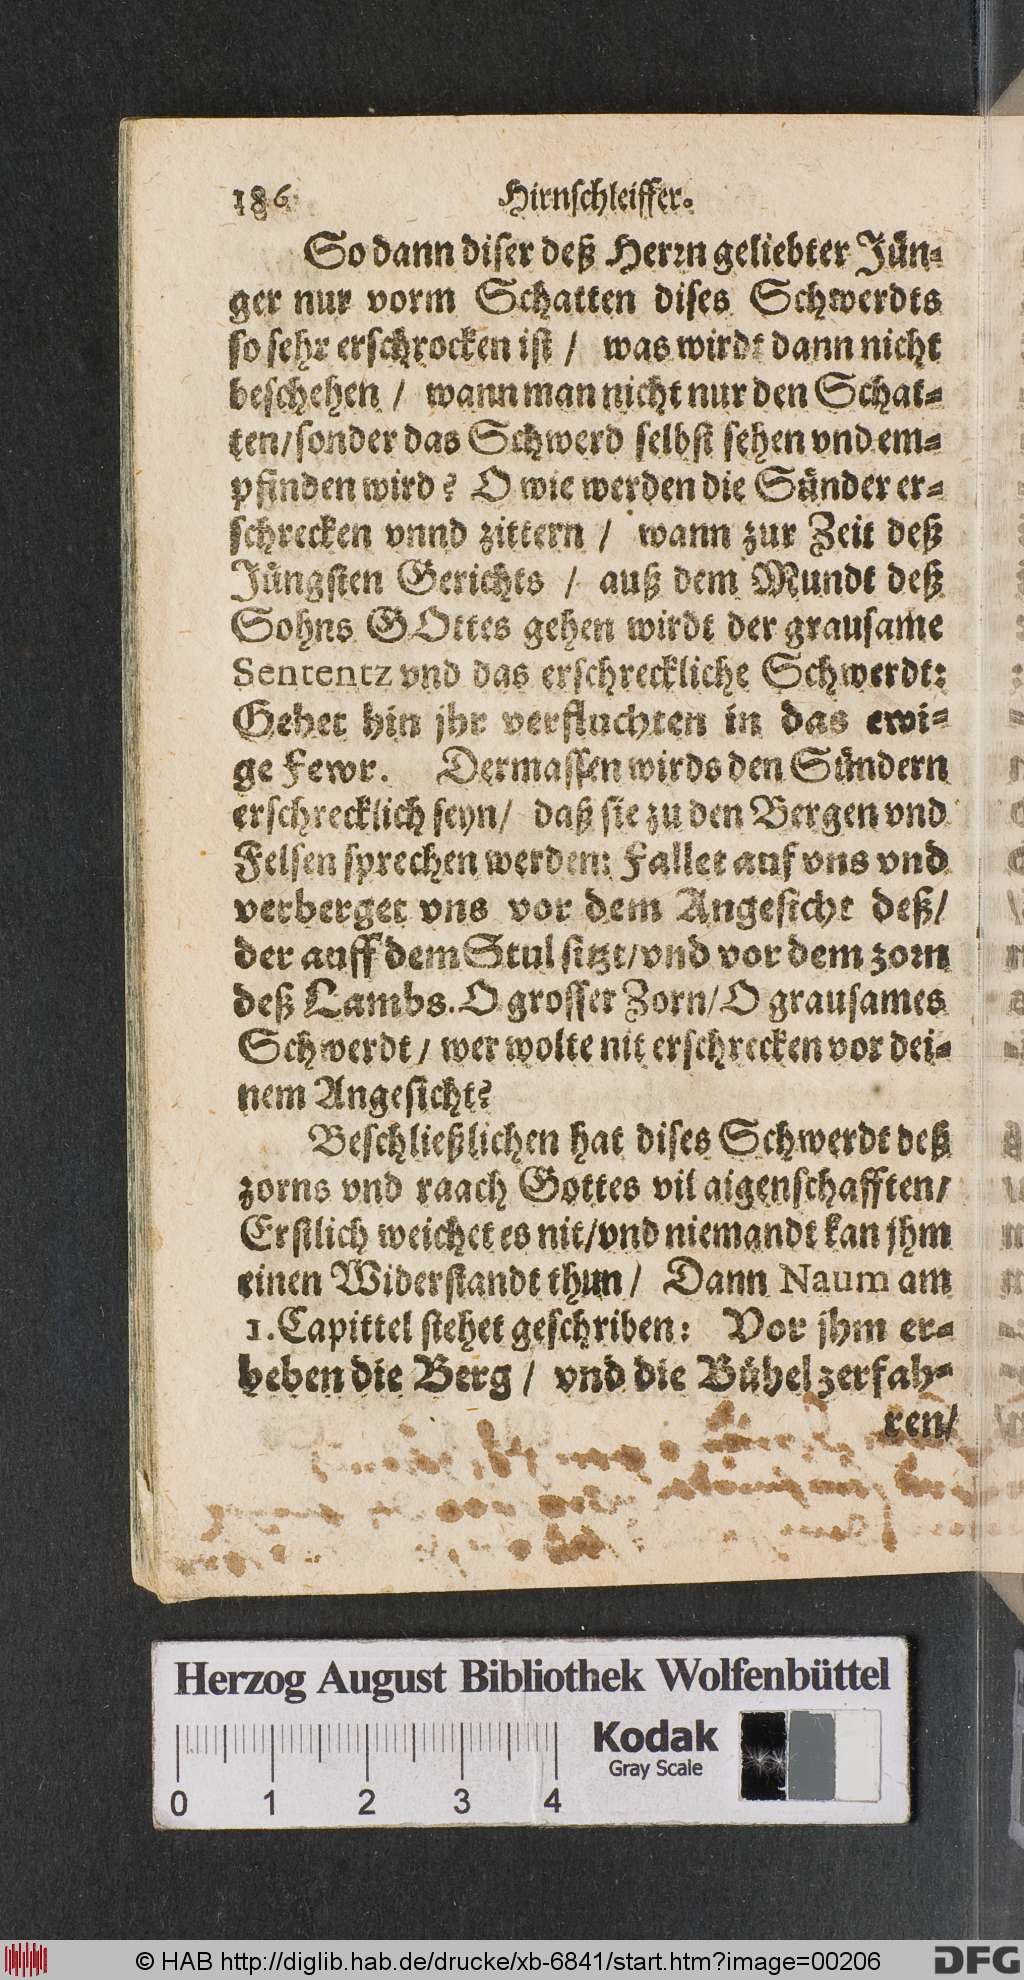 186 Hirnschleiffer.
So dann diser deß Herꝛn geliebter Jün-
ger nur vorm Schatten dises Schwerdts
so sehr erschrocken ist / was wirdt dann nicht
beschehen / wann man nicht nur den Schat-
ten/sonder das Schwerd selbst sehen vnd em-
pfinden wird? O wie werden die Sünder er-
schrecken vnnd zittern / wann zur Zeit deß
Jüngsten Gerichts / auß dem Mundt deß
Sohns GOttes gehen wirdt der grausame
Sententz vnd das erschreckliche Schwerdt:
Gehet hin jhr verfluchten in das ewi-
ge Fewr. Dermassen wirds den Sündern
erschrecklich seyn/ daß sie zu den Bergen vnd
Felsen sprechen werden: Fallet auf vns vnd
verberget vns vor dem Angesicht deß/
der auff dem Stul sitzt/vnd vor dem zorn
deß Lambs. O grosser Zorn/O grausames
Schwerdt / wer wolte nit erschrecken vor dei-
nem Angesicht?
Beschließlichen hat dises Schwerdt deß
zorns vnd raach Gottes vil aigenschafften/
Erstlich weichet es nit/vnd niemandt kan jhm
einen Widerstandt thun / Dann Naum am
1. Capittel stehet geschriben: Vor jhm er-
heben die Berg / vnd die Bühel zerfah-
ren/
Herzog August Bibliothek Wolfenbüttel
Kodak
Gray Scale
0 1 2 3 4
© HAB http://diglib.hab.de/drucke/xb-6841/start.htm?image=00206
DFG